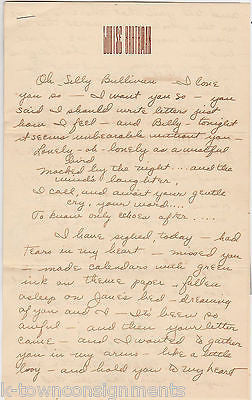 LOUISE BRITTAIN
Oh Silly Bullivan - I love
you so - I want you so - you
said I should write letters just
how I feel - and Billy - tonight
it seems unbearable without you
Lonely - oh - lonely as a wistful
bird
Mocked by the night .... and the
wind's laughter,
I call, and await your gentle
cry, your word....
To know only echoes after....
I have sighed today - had
tears in my heart - missed you
- made calendars with green
ink on theme paper - fallen
asleep on Jane's bed - dreaming
of you and I - It's been so
awful - and then your letter
come - and I wanted to gather
you in my arms - like a little
boy - and hold you to my heart -
k-townconsignments